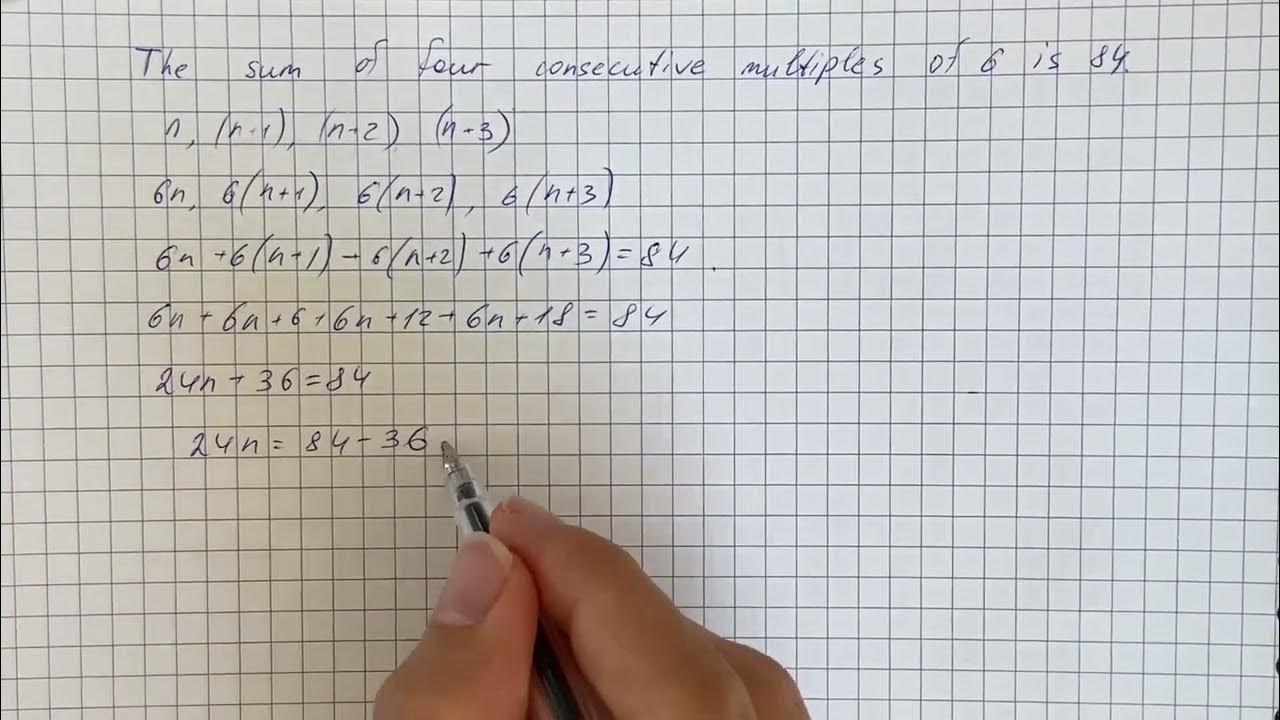 The sum of four consecutive multiples of 6 is 84.
n, (n+1), (n+2) (n+3)
6n, 6(n+1), 6(n+2), 6(n+3)
6n +6(n+1)+6(n+2)+6(n+3)=84.
6n+6n+6+6n+12+6n+18=84
24n+36=84
24n=84-36